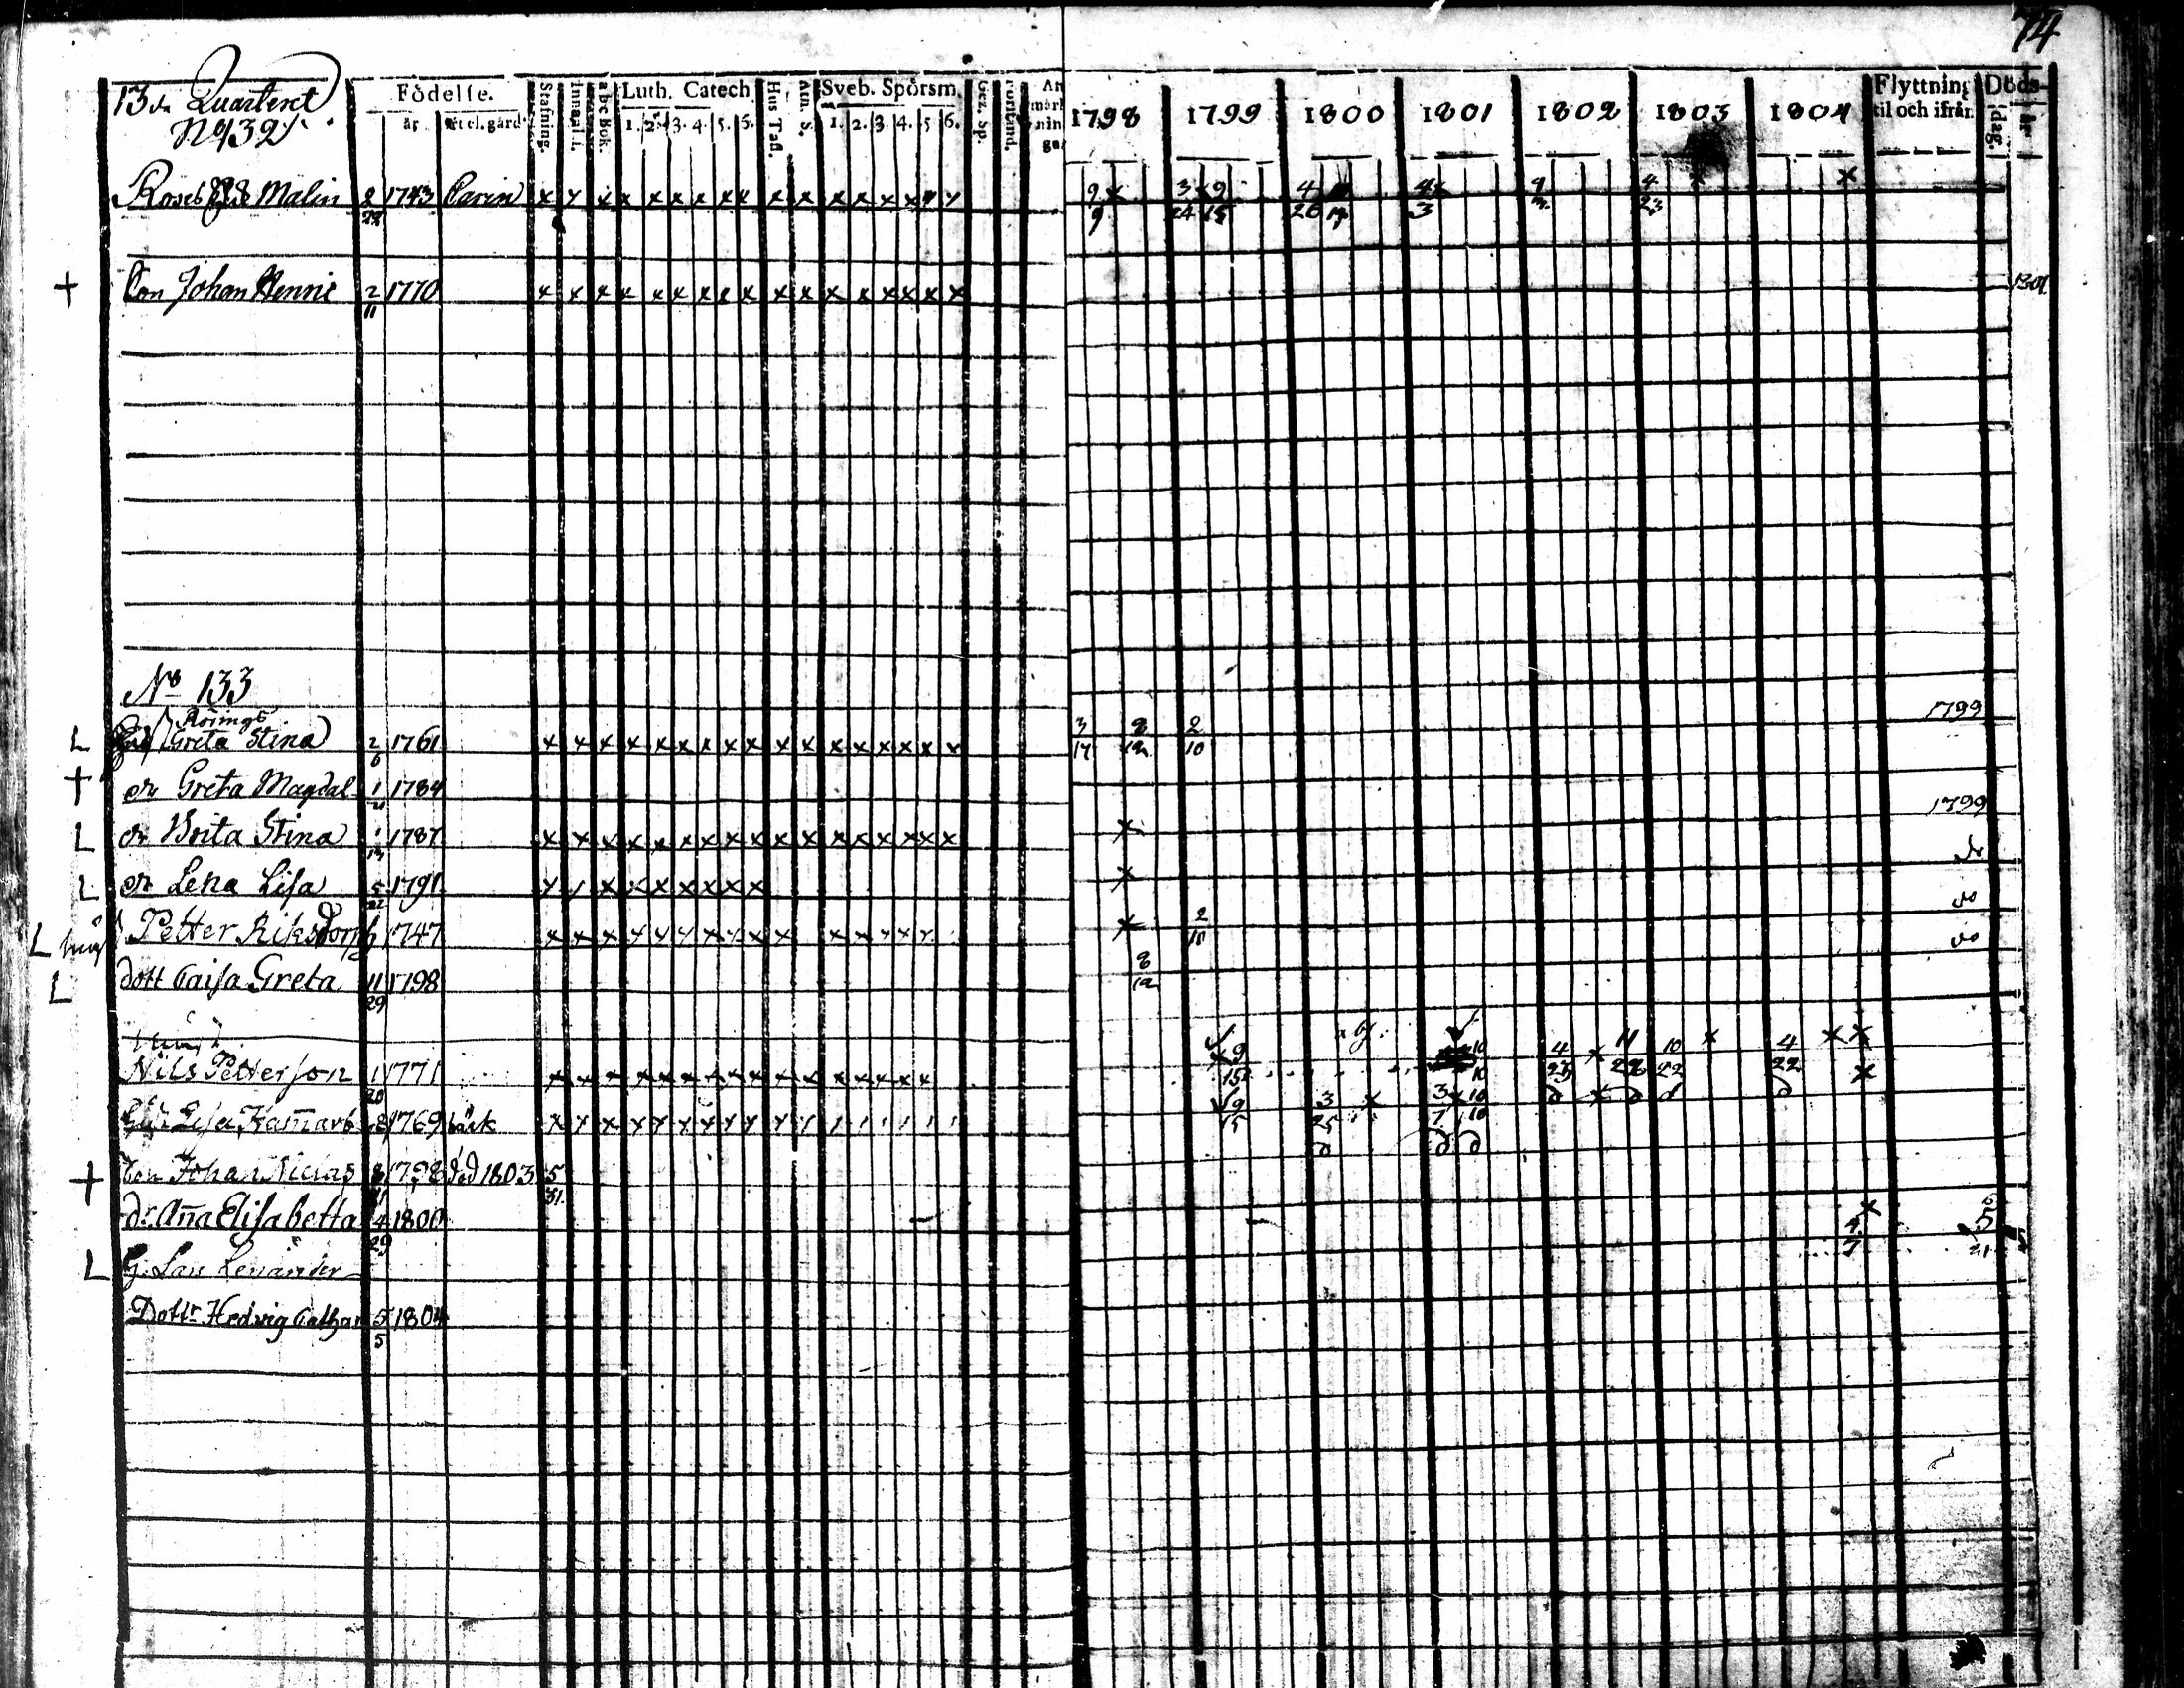 74
13de Quarteret
No 132
Födelse.
år
Ort el. gård
Stafning.
Innan l.
a b c Bok.
Luth. Catech
1. 2. 3. 4. 5. 6.
Hus Tafl.
Ath. S.
Sveb. Spörsm.
1. 2. 3. 4. 5 6.
Gez. Sp.
1798 1799 1800 1801 1802 1803 1804
Flyttning til och ifrån
Döds-
dag.
år
Malin 2/28 1743 Carin x x x x x x x x x x x x x x x x x 9/9 x 3/24 x 9/15 4/26 4/3 x 4/23 x x
+ Son Johan Henric 2/11 1770 x x x x x x x x x x x x x x x x x 1801
No 133
Rörings
L Greta Stina 2/6 1761 x x x x x x x x x x x x x x x x x 3/17 8/12 2/10 1799
+ dr Greta Magdal 1 1784 1799
L dr Brita Stina 1/13 1787 x x x x x x x x x x x x x x x x x x do
L dr Lena Lisa 5/22 1791 x x x x x x x x x x do
L Petter Riksdorph 1747 x x x x x x x x x x x x x x x x 2/10 do
L dott Caisa Greta 11/29 1798 8/12
Nils Petterson 1/20 1771 x x x x x x x x x x x x x x x x x 9/15 10/10 4/25 x 11/28 10/22 x 4/22 x x x
Lisa 8 1769 x x x x x x x x x x 9/15 3/25 x 3/7 x 10/10 d x d d d
+ Son Johan Niclas 8/11 1798 död 1803 5/31 d d d
dr Anna Elisabetta 4/29 1800 x
L G. Lars Lenander 4/7
Dottr Hedvig Cathar 5/5 1804